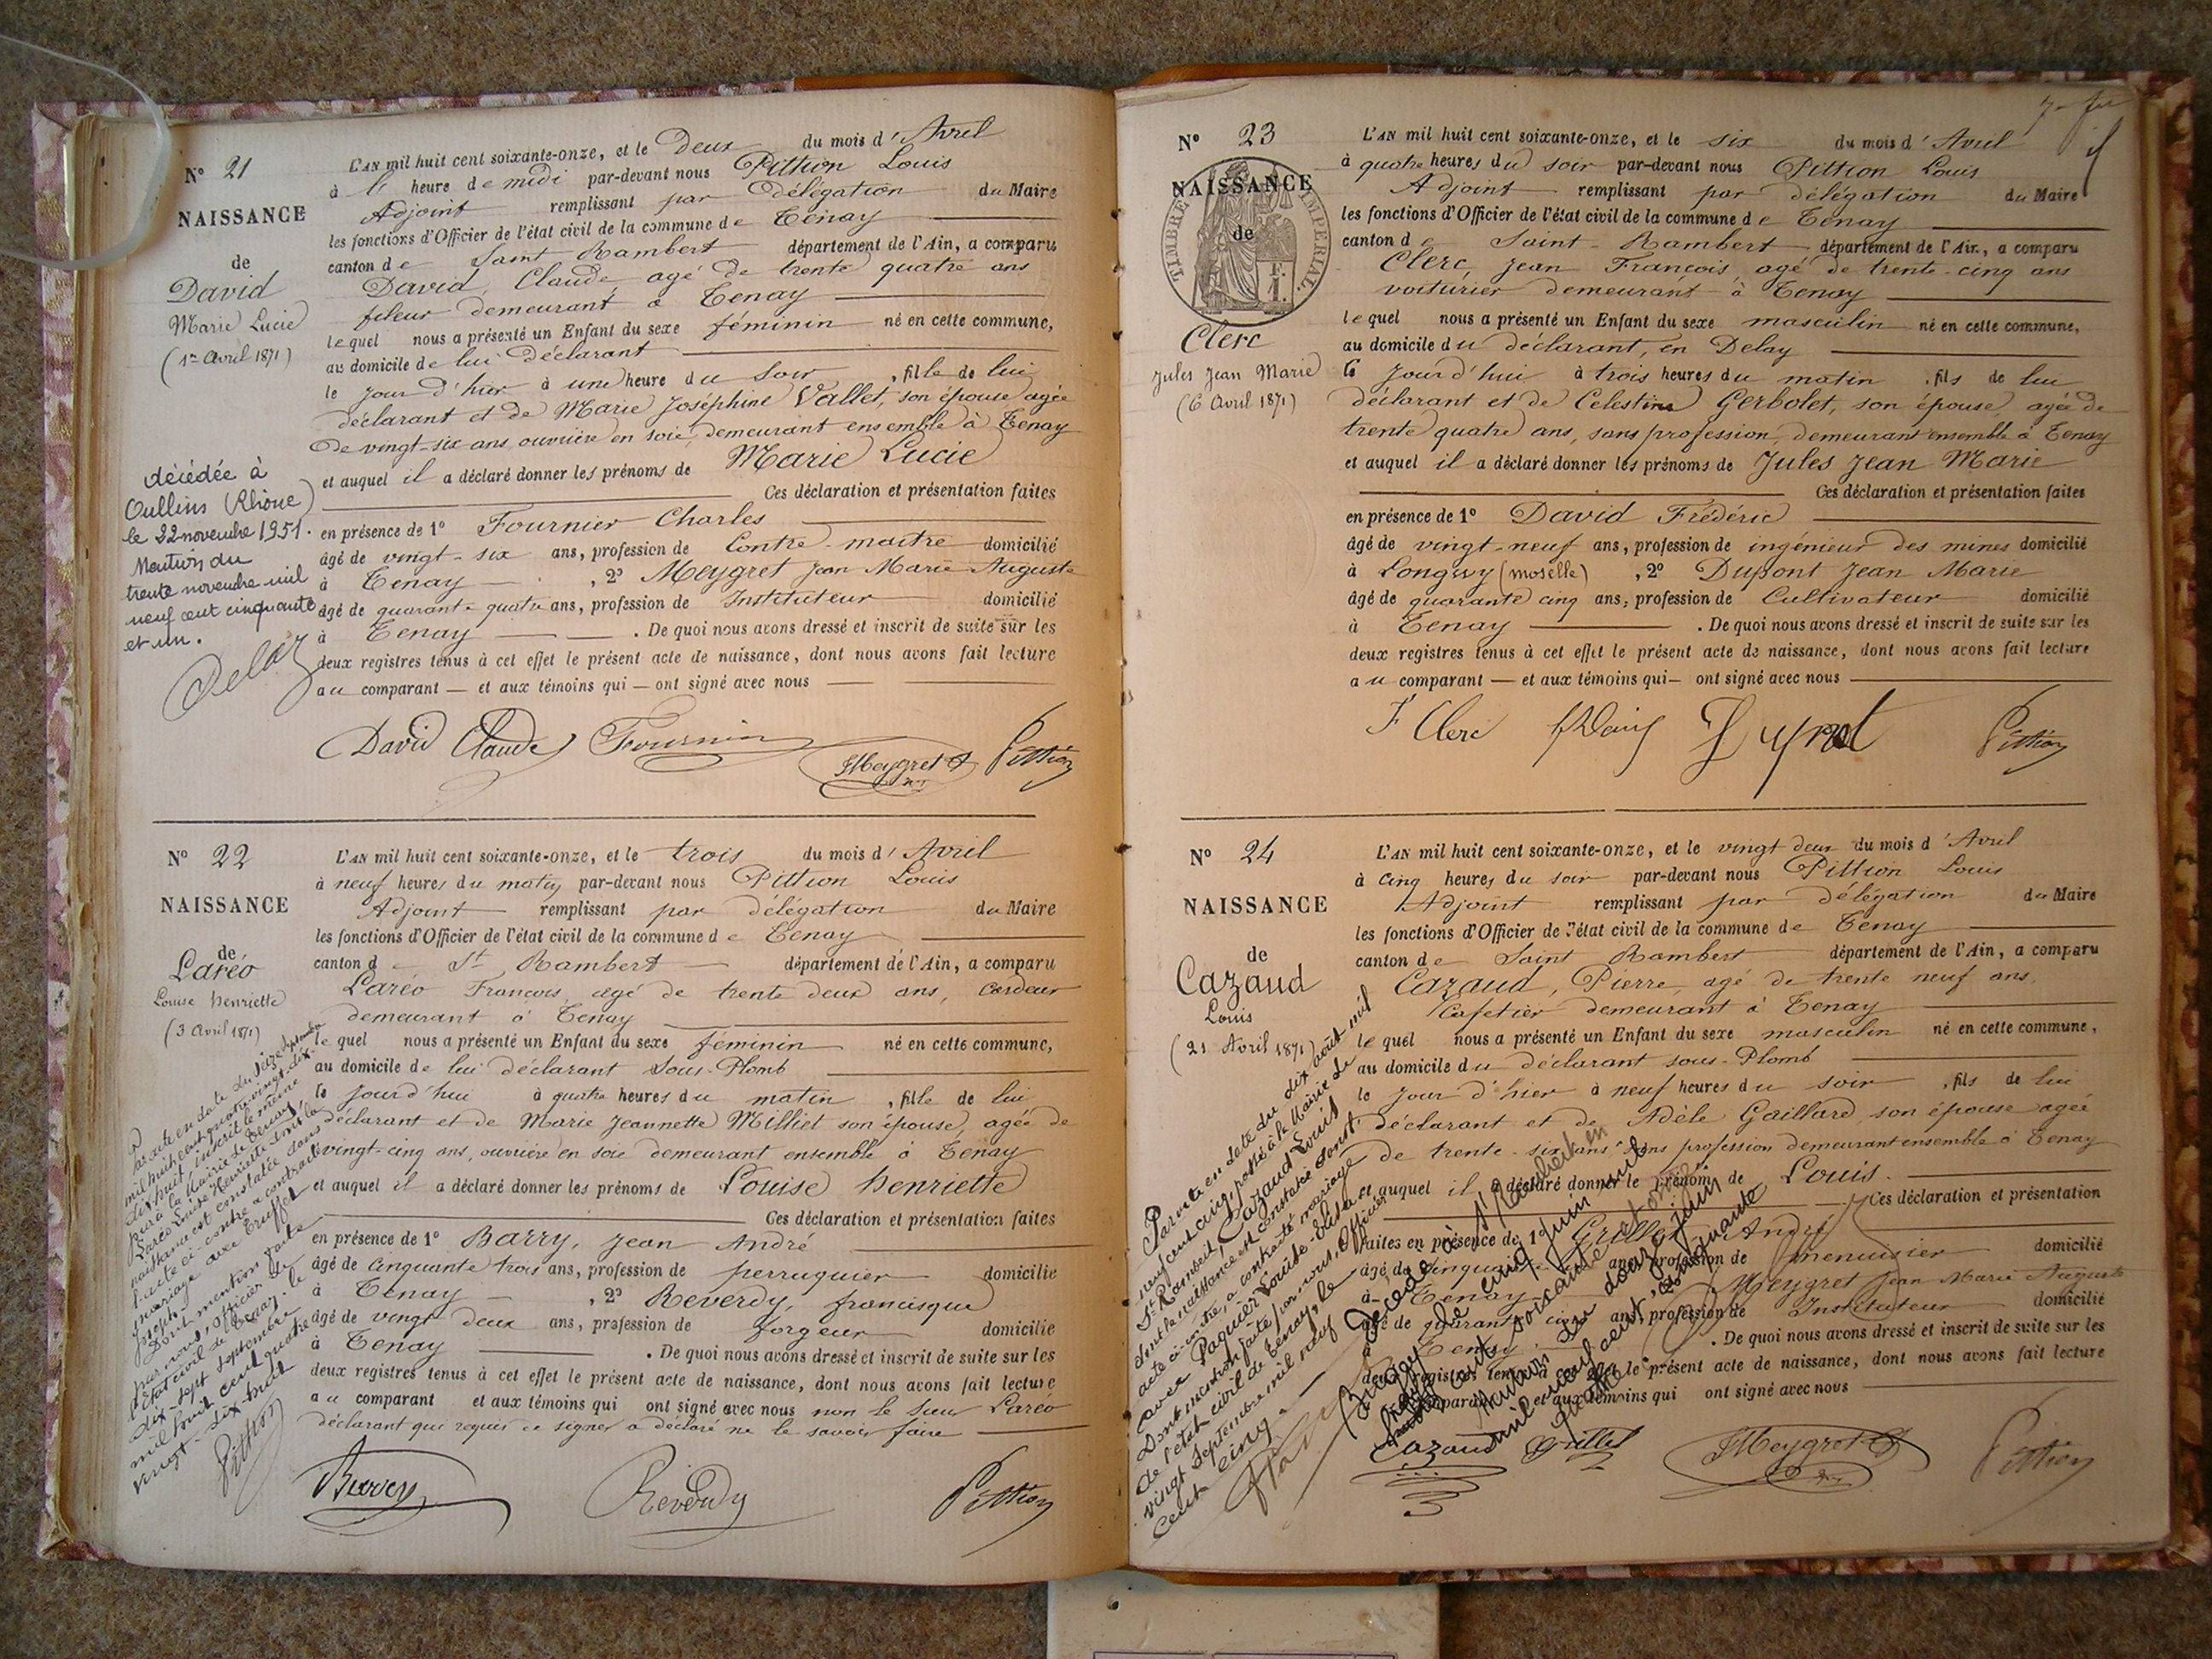 N° 21
NAISSANCE
de
David
Marie Lucie
(1er Avril 1871)
L'AN mil huit cent soixante-onze, et le Deux du mois d'Avril
à l' heure de midi par-devant nous Pittion Louis
Adjoint remplissant par délégation du Maire
les fonctions d'Officier de l'état civil de la commune de Tenay
canton de Saint Rambert département de l'Ain, a comparu
David, Claude, agé de trente quatre ans
fileur demeurant à Tenay
lequel nous a présenté un Enfant du sexe féminin né en cette commune,
au domicile de lui déclarant
le jour d'hier à une heure du Soir, fille de lui
déclarant et de Marie Joséphine Vallet, son épouse agée
de vingt-six ans, ouvrière en soie, demeurant ensemble à Tenay
et auquel il a déclaré donner les prénoms de Marie Lucie
Ces déclaration et présentation faites
en présence de 1° Fournier Charles
âgé de vingt-six ans, profession de Contre-maitre domicilié
à Tenay, 2° Meygret Jean Marie Auguste
âgé de quarante quatre ans, profession de Instituteur domicilié
à Tenay. De quoi nous avons dressé et inscrit de suite sur les
deux registres tenus à cet effet le présent acte de naissance, dont nous avons fait lecture
au comparant — et aux témoins qui — ont signé avec nous
décédée à
Oullins (Rhône)
le 22 novembre 1951.
Mention du
trente novembre mil
neuf cent cinquante
et un.
David Claude Fournier
Meygret Pittion
N° 22
NAISSANCE
de
Laréo
Louise henriette
(3 Avril 1871)
L'AN mil huit cent soixante-onze, et le trois du mois d'Avril
à neuf heures du matin par-devant nous Pittion Louis
Adjoint remplissant par délégation du Maire
les fonctions d'Officier de l'état civil de la commune de Tenay
canton de St Rambert département de l'Ain, a comparu
Laréo François, agé de trente deux ans, Cardeur
demeurant à Tenay
lequel nous a présenté un Enfant du sexe féminin né en cette commune,
au domicile de lui déclarant Sous-Plomb
le jour d'hui à quatre heures du matin, fille de lui
déclarant et de Marie Jeannette Milliet son épouse, agée de
vingt-cinq ans, ouvrière en soie demeurant ensemble à Tenay
et auquel il a déclaré donner les prénoms de Louise henriette
Ces déclaration et présentation faites
en présence de 1° Barry, Jean André
âgé de cinquante trois ans, profession de perruquier domicilié
à Tenay, 2° Reverdy, francisque
âgé de vingt deux ans, profession de forgeur domicilié
à Tenay. De quoi nous avons dressé et inscrit de suite sur les
deux registres tenus à cet effet le présent acte de naissance, dont nous avons fait lecture
au comparant et aux témoins qui ont signé avec nous non le sieur Laréo
déclarant qui requis de signer a déclaré ne le savoir faire
Par acte en date du seize septembre
mil huit cent quatre vingt-dix-
dix huit, inscrit le même
jour à la Mairie de Tenay,
Laréo Louise Henriette dont la
naissance est constatée dans
l'acte ci-contre a contracté
mariage avec Truffet
Joseph.
Dont mention faite
par nous, officier de
l'état civil de Tenay, le
dix-sept septembre
mil huit cent quatre
vingt-dix-huit
Pittion
Reverdy
Pittion
N° 23
NAISSANCE
de
TIMBRE IMPERIAL
1 F.
Clerc
Jules Jean Marie
(6 Avril 1871)
L'AN mil huit cent soixante-onze, et le six du mois d'Avril
à quatre heures du soir par-devant nous Pittion Louis
Adjoint remplissant par délégation du Maire
les fonctions d'Officier de l'état civil de la commune de Tenay
canton de Saint-Rambert département de l'Ain, a comparu
Clerc, Jean François, agé de trente-cinq ans
voiturier demeurant à Tenay
lequel nous a présenté un Enfant du sexe masculin né en cette commune,
au domicile du déclarant, en Delay
le jour d'hui à trois heures du matin, fils de lui
déclarant et de Celestine Gerbolet, son épouse, agée de
trente quatre ans, sans profession, demeurant ensemble à Tenay
et auquel il a déclaré donner les prénoms de Jules Jean Marie
Ces déclaration et présentation faites
en présence de 1° David Frédéric
âgé de vingt-neuf ans, profession de ingénieur des mines domicilié
à Longwy (moselle), 2° Dupont Jean Marie
âgé de quarante cinq ans, profession de Cultivateur domicilié
à Tenay. De quoi nous avons dressé et inscrit de suite sur les
deux registres tenus à cet effet le présent acte de naissance, dont nous avons fait lecture
au comparant — et aux témoins qui — ont signé avec nous
F Clerc
Pittion
N° 24
NAISSANCE
de
Cazaud
Louis
(21 Avril 1871)
L'AN mil huit cent soixante-onze, et le vingt deux du mois d'Avril
à cinq heures du soir par-devant nous Pittion Louis
Adjoint remplissant par délégation du Maire
les fonctions d'Officier de l'état civil de la commune de Tenay
canton de Saint Rambert département de l'Ain, a comparu
Cazaud, Pierre, agé de trente neuf ans,
Cafetier demeurant à Tenay
lequel nous a présenté un Enfant du sexe masculin né en cette commune,
au domicile du déclarant sous-Plomb
le jour d'hier à neuf heures du soir, fils de lui
déclarant et de Adèle Gaillard son épouse agée
de trente-six ans, sans profession demeurant ensemble à Tenay
et auquel il a déclaré donner le prénom de Louis.
Ces déclaration et présentation
faites en présence de 1° Grillet André
âgé de cinquante ans, profession de menuisier domicilié
à Tenay Meygret Jean Marie Auguste
âgé de quarante cinq ans, profession de Instituteur domicilié
Tenay. De quoi nous avons dressé et inscrit de suite sur les
deux registres tenus à cet effet le présent acte de naissance, dont nous avons fait lecture
comparant et aux témoins qui ont signé avec nous
Par acte en date du dix août mil
neuf cent cinq, passé à la Mairie de
St Rambert, Cazaud Louis
dont la naissance est constatée dans l'
acte ci-contre, a contracté mariage
avec Paquier Louise-
Dont mention faite par nous, Officier
de l'état civil de Tenay, le
vingt Septembre mil neuf
cent cinq
Décédé à St Rambert en
Bugey le cinq juin mil
neuf cent soixante
Mention du douze juin
mil neuf cent cinquante
quatre
Cazaud Grillet Meygret Pittion